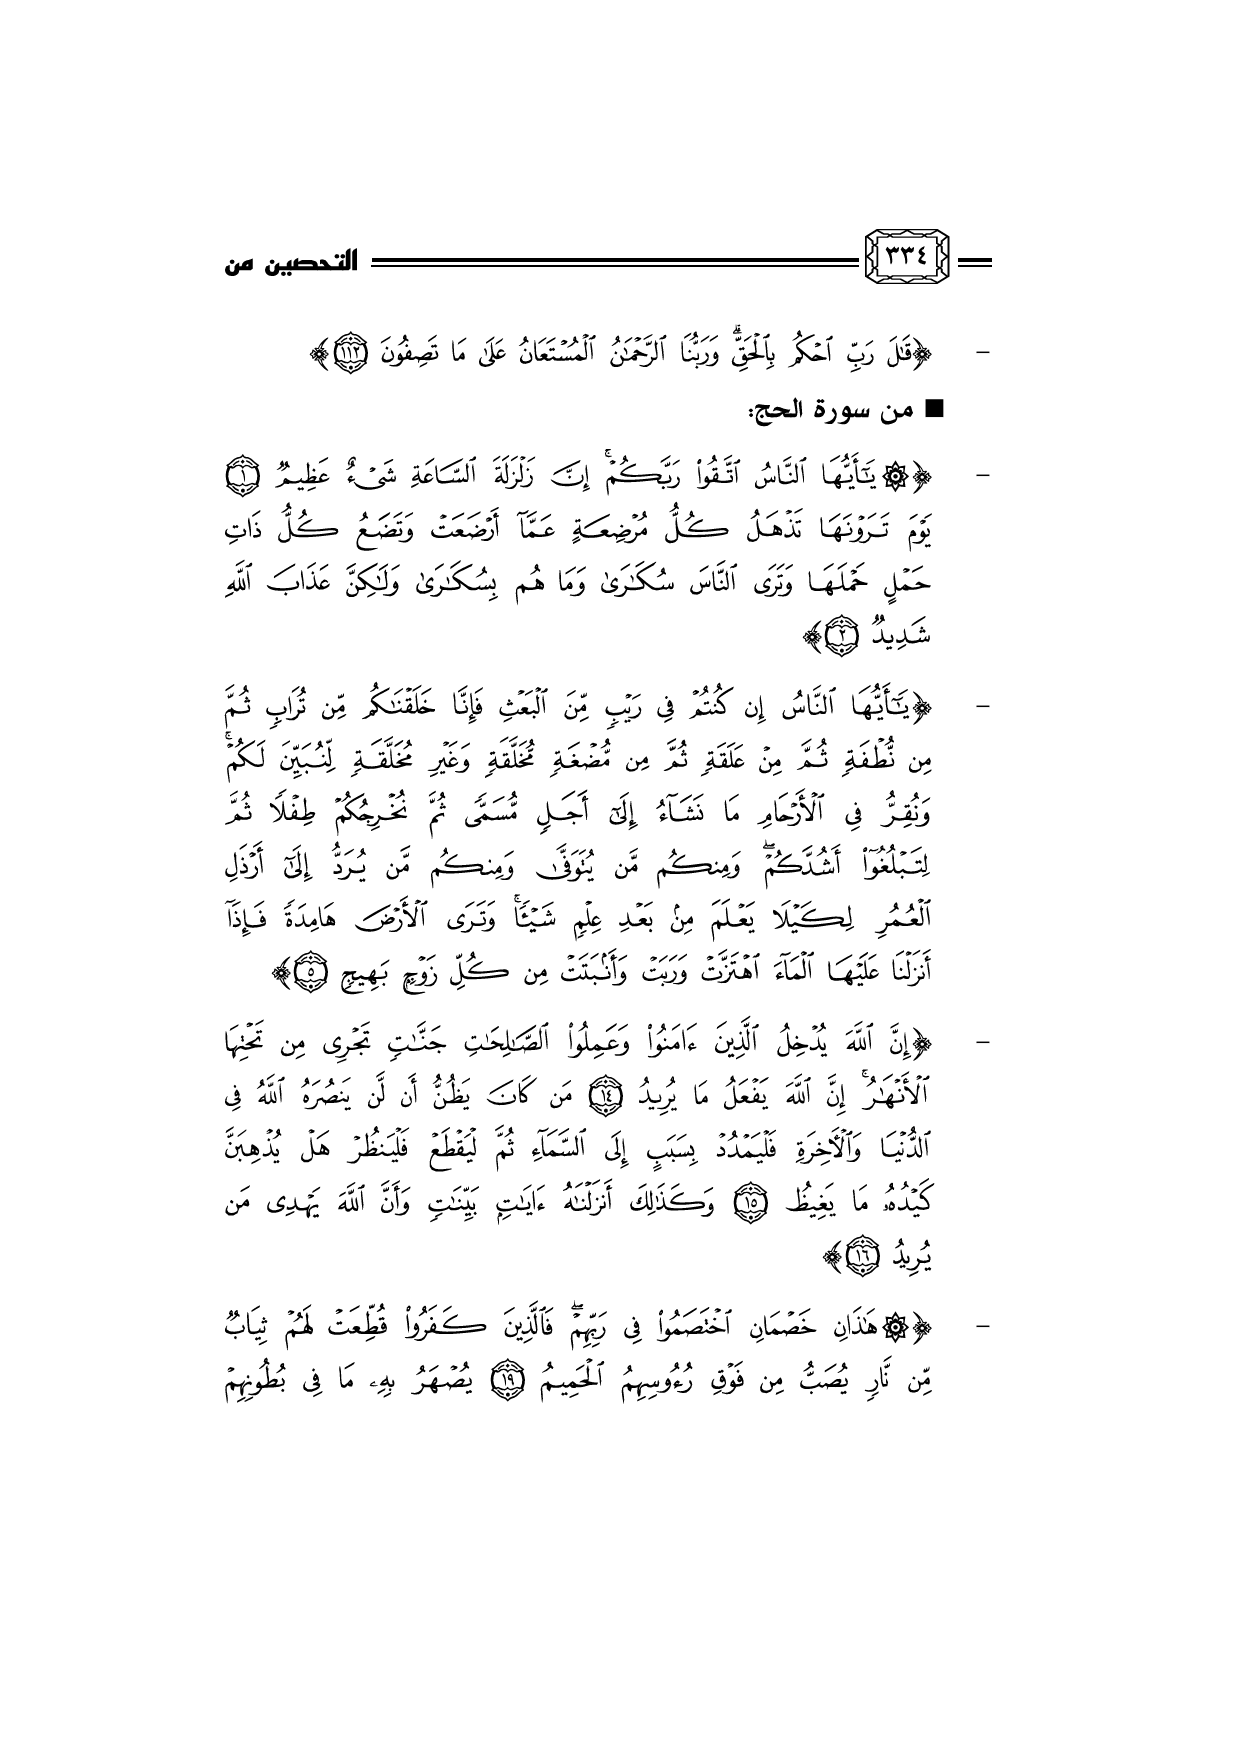 التحصين من ٣٣٤
– ﴿قَٰلَ رَبِّ ٱحۡكُم بِٱلۡحَقِّۗ وَرَبُّنَا ٱلرَّحۡمَٰنُ ٱلۡمُسۡتَعَانُ عَلَىٰ مَا تَصِفُونَ ١١٢﴾
■ من سورة الحج:
– ﴿۞ يَٰٓأَيُّهَا ٱلنَّاسُ ٱتَّقُواْ رَبَّكُمۡۚ إِنَّ زَلۡزَلَةَ ٱلسَّاعَةِ شَيۡءٌ عَظِيمٞ ١
يَوۡمَ تَرَوۡنَهَا تَذۡهَلُ كُلُّ مُرۡضِعَةٍ عَمَّآ أَرۡضَعَتۡ وَتَضَعُ كُلُّ ذَاتِ
حَمۡلٍ حَمۡلَهَا وَتَرَى ٱلنَّاسَ سُكَٰرَىٰ وَمَا هُم بِسُكَٰرَىٰ وَلَٰكِنَّ عَذَابَ ٱللَّهِ
شَدِيدٞ ٢﴾
– ﴿يَٰٓأَيُّهَا ٱلنَّاسُ إِن كُنتُمۡ فِي رَيۡبٖ مِّنَ ٱلۡبَعۡثِ فَإِنَّا خَلَقۡنَٰكُم مِّن تُرَابٖ ثُمَّ
مِن نُّطۡفَةٖ ثُمَّ مِنۡ عَلَقَةٖ ثُمَّ مِن مُّضۡغَةٖ مُّخَلَّقَةٖ وَغَيۡرِ مُخَلَّقَةٖ لِّنُبَيِّنَ لَكُمۡۚ
وَنُقِرُّ فِي ٱلۡأَرۡحَامِ مَا نَشَآءُ إِلَىٰٓ أَجَلٖ مُّسَمّٗى ثُمَّ نُخۡرِجُكُمۡ طِفۡلٗا ثُمَّ
لِتَبۡلُغُوٓاْ أَشُدَّكُمۡۖ وَمِنكُم مَّن يُتَوَفَّىٰ وَمِنكُم مَّن يُرَدُّ إِلَىٰٓ أَرۡذَلِ
ٱلۡعُمُرِ لِكَيۡلَا يَعۡلَمَ مِنۢ بَعۡدِ عِلۡمٖ شَيۡـٔٗاۚ وَتَرَى ٱلۡأَرۡضَ هَامِدَةٗ فَإِذَآ
أَنزَلۡنَا عَلَيۡهَا ٱلۡمَآءَ ٱهۡتَزَّتۡ وَرَبَتۡ وَأَنۢبَتَتۡ مِن كُلِّ زَوۡجِۭ بَهِيجٖ ٥﴾
– ﴿إِنَّ ٱللَّهَ يُدۡخِلُ ٱلَّذِينَ ءَامَنُواْ وَعَمِلُواْ ٱلصَّٰلِحَٰتِ جَنَّٰتٖ تَجۡرِي مِن تَحۡتِهَا
ٱلۡأَنۡهَٰرُۚ إِنَّ ٱللَّهَ يَفۡعَلُ مَا يُرِيدُ ١٤ مَن كَانَ يَظُنُّ أَن لَّن يَنصُرَهُ ٱللَّهُ فِي
ٱلدُّنۡيَا وَٱلۡأٓخِرَةِ فَلۡيَمۡدُدۡ بِسَبَبٍ إِلَى ٱلسَّمَآءِ ثُمَّ لۡيَقۡطَعۡ فَلۡيَنظُرۡ هَلۡ يُذۡهِبَنَّ
كَيۡدُهُۥ مَا يَغِيظُ ١٥ وَكَذَٰلِكَ أَنزَلۡنَٰهُ ءَايَٰتِۭ بَيِّنَٰتٖ وَأَنَّ ٱللَّهَ يَهۡدِي مَن
يُرِيدُ ١٦﴾
– ﴿۞ هَٰذَانِ خَصۡمَانِ ٱخۡتَصَمُواْ فِي رَبِّهِمۡۖ فَٱلَّذِينَ كَفَرُواْ قُطِّعَتۡ لَهُمۡ ثِيَابٞ
مِّن نَّارٖ يُصَبُّ مِن فَوۡقِ رُءُوسِهِمُ ٱلۡحَمِيمُ ١٩ يُصۡهَرُ بِهِۦ مَا فِي بُطُونِهِمۡ